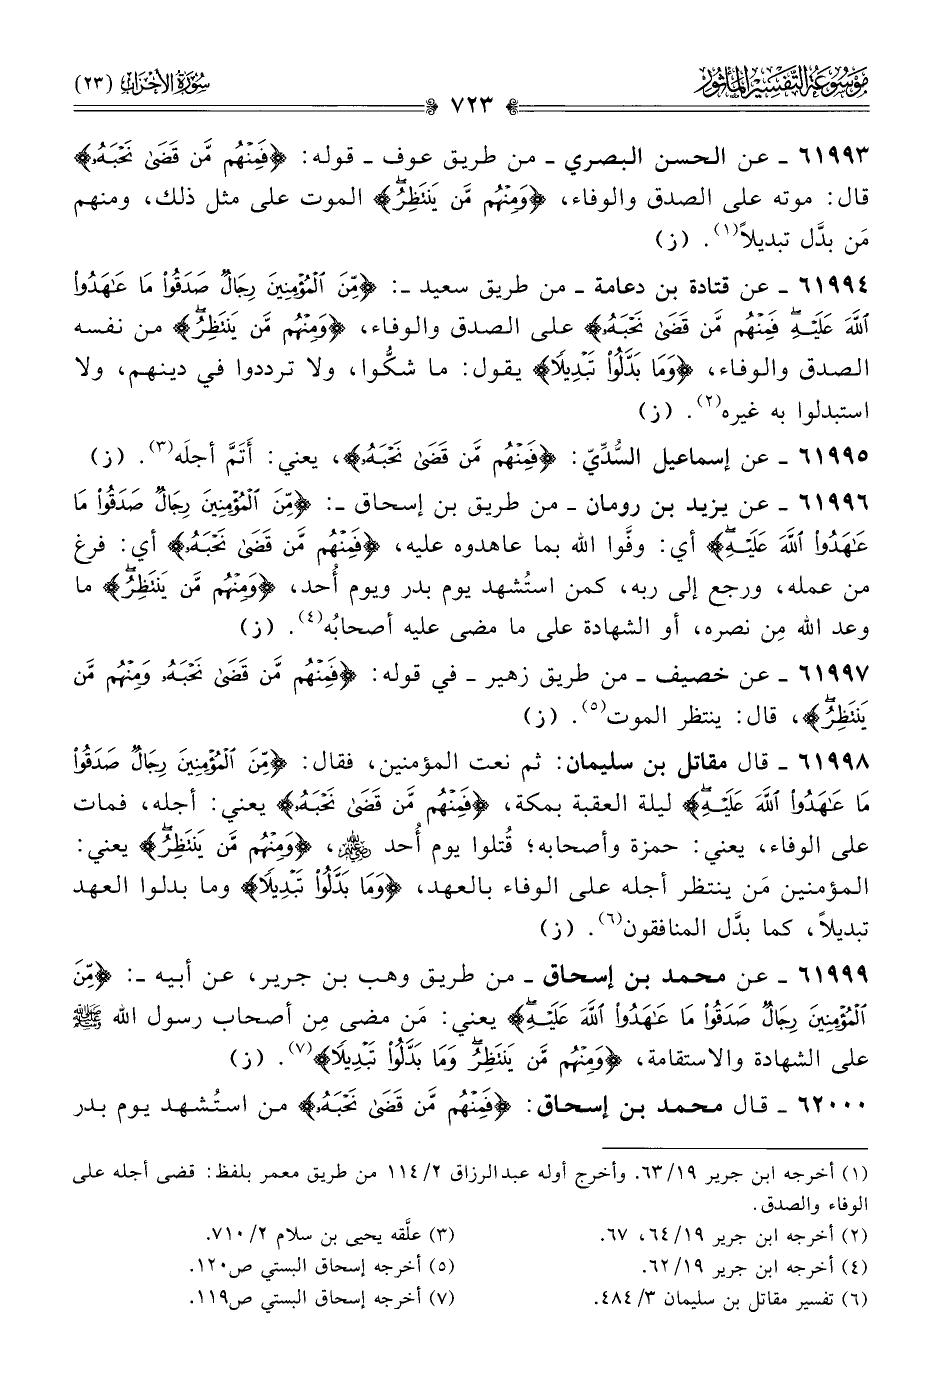 مَوْسُوعَة التَّفْسِير المَأْثُور
سُورَةُ الأَحْزَاب (٢٣)
٧٢٣
٦١٩٩٣ ـ عن الحسن البصري ـ من طريق عوف ـ قوله: ﴿فَمِنْهُم مَّن قَضَىٰ نَحْبَهُۥ﴾
قال: موته على الصدق والوفاء، ﴿وَمِنْهُم مَّن يَنتَظِرُۖ﴾ الموت على مثل ذلك، ومنهم
مَن بدَّل تبديلاً(١). (ز)
٦١٩٩٤ ـ عن قتادة بن دعامة ـ من طريق سعيد ـ: ﴿مِّنَ ٱلْمُؤْمِنِينَ رِجَالٌ صَدَقُوا۟ مَا عَـٰهَدُوا۟
ٱللَّهَ عَلَيْهِۖ فَمِنْهُم مَّن قَضَىٰ نَحْبَهُۥ﴾ على الصدق والوفاء، ﴿وَمِنْهُم مَّن يَنتَظِرُۖ﴾ من نفسه
الصدق والوفاء، ﴿وَمَا بَدَّلُوا۟ تَبْدِيلًا﴾ يقول: ما شكُّوا، ولا ترددوا في دينهم، ولا
استبدلوا به غيره(٢). (ز)
٦١٩٩٥ ـ عن إسماعيل السُّدِّيّ: ﴿فَمِنْهُم مَّن قَضَىٰ نَحْبَهُۥ﴾، يعني: أَتَمَّ أجلَه(٣). (ز)
٦١٩٩٦ ـ عن يزيد بن رومان ـ من طريق بن إسحاق ـ: ﴿مِّنَ ٱلْمُؤْمِنِينَ رِجَالٌ صَدَقُوا۟ مَا
عَـٰهَدُوا۟ ٱللَّهَ عَلَيْهِۖ﴾ أي: وفَّوا الله بما عاهدوه عليه، ﴿فَمِنْهُم مَّن قَضَىٰ نَحْبَهُۥ﴾ أي: فرغ
من عمله، ورجع إلى ربه، كمن استُشهد يوم بدر ويوم أُحد، ﴿وَمِنْهُم مَّن يَنتَظِرُۖ﴾ ما
وعد الله مِن نصره، أو الشهادة على ما مضى عليه أصحابُه(٤). (ز)
٦١٩٩٧ ـ عن خصيف ـ من طريق زهير ـ في قوله: ﴿فَمِنْهُم مَّن قَضَىٰ نَحْبَهُۥ وَمِنْهُم مَّن
يَنتَظِرُۖ﴾، قال: ينتظر الموت(٥). (ز)
٦١٩٩٨ ـ قال مقاتل بن سليمان: ثم نعت المؤمنين، فقال: ﴿مِّنَ ٱلْمُؤْمِنِينَ رِجَالٌ صَدَقُوا۟
مَا عَـٰهَدُوا۟ ٱللَّهَ عَلَيْهِۖ﴾ ليلة العقبة بمكة، ﴿فَمِنْهُم مَّن قَضَىٰ نَحْبَهُۥ﴾ يعني: أجله، فمات
على الوفاء، يعني: حمزة وأصحابه؛ قُتلوا يوم أُحد ﵃، ﴿وَمِنْهُم مَّن يَنتَظِرُۖ﴾ يعني:
المؤمنين مَن ينتظر أجله على الوفاء بالعهد، ﴿وَمَا بَدَّلُوا۟ تَبْدِيلًا﴾ وما بدلوا العهد
تبديلاً، كما بدَّل المنافقون(٦). (ز)
٦١٩٩٩ ـ عن محمد بن إسحاق ـ من طريق وهب بن جرير، عن أبيه ـ: ﴿مِّنَ
ٱلْمُؤْمِنِينَ رِجَالٌ صَدَقُوا۟ مَا عَـٰهَدُوا۟ ٱللَّهَ عَلَيْهِۖ﴾ يعني: مَن مضى مِن أصحاب رسول الله ﷺ
على الشهادة والاستقامة، ﴿وَمِنْهُم مَّن يَنتَظِرُۖ وَمَا بَدَّلُوا۟ تَبْدِيلًا﴾(٧). (ز)
٦٢٠٠٠ ـ قال محمد بن إسحاق: ﴿فَمِنْهُم مَّن قَضَىٰ نَحْبَهُۥ﴾ من استُشهد يوم بدر
(١) أخرجه ابن جرير ١٩/ ٦٣. وأخرج أوله عبدالرزاق ٢/ ١١٤ من طريق معمر بلفظ: قضى أجله على
الوفاء والصدق.
(٢) أخرجه ابن جرير ١٩/ ٦٤، ٦٧.
(٣) علَّقه يحيى بن سلام ٢/ ٧١٠.
(٤) أخرجه ابن جرير ١٩/ ٦٢.
(٥) أخرجه إسحاق البستي ص١٢٠.
(٦) تفسير مقاتل بن سليمان ٣/ ٤٨٤.
(٧) أخرجه إسحاق البستي ص١١٩.